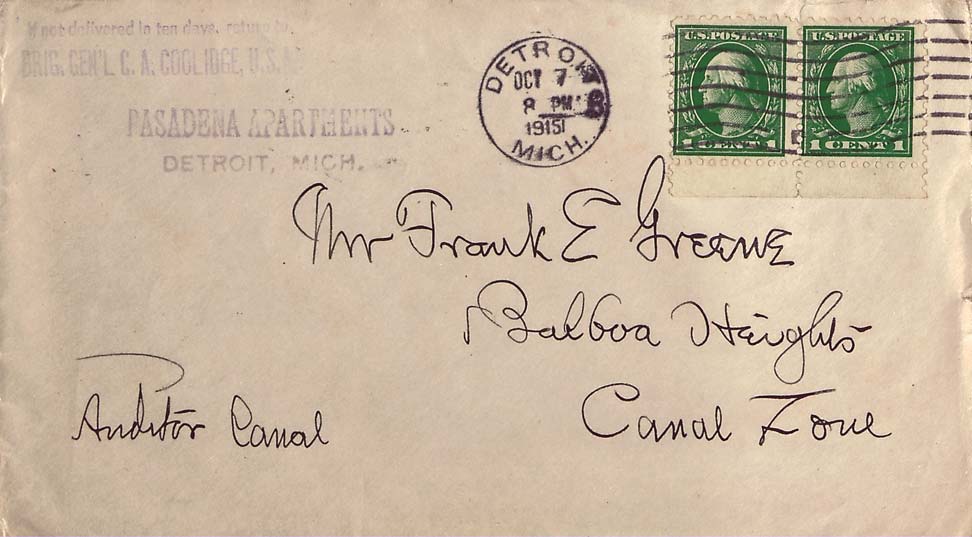 If not delivered in ten days, return to
BRIG. GEN'L C. A. COOLIDGE, U.S.A.
PASADENA APARTMENTS
DETROIT, MICH.
DETROIT
OCT 7
8 PM
1915
MICH.
U.S. POSTAGE
1 CENT 1
U.S. POSTAGE
1 CENT 1
Mr Frank E Greene
Balboa Heights
Canal Zone
Auditor Canal